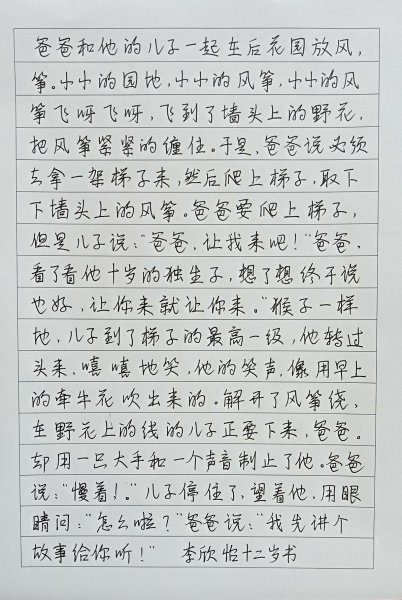 爸爸和他的儿子一起在后花园放风,
筝。小小的园地,小小的风筝,小小的风
筝飞呀飞呀,飞到了墙头上的野花,
把风筝紧紧的缠住。于是,爸爸说必须
去拿一架梯子来,然后爬上梯子,取下
下墙头上的风筝。爸爸要爬上梯子,
但是儿子说:“爸爸,让我来吧!”爸爸,
看了看他十岁的独生子,想了想终于说
也好,让你来就让你来。”猴子一样
地,儿子到了梯子的最高一级,他转过
头来,嘻嘻地笑,他的笑声,像用早上
的牵牛花吹出来的。解开了风筝绕,
在野花上的线的儿子正要下来,爸爸。
却用一只大手和一个声音制止了他。爸爸
说:“慢着!。”儿子停住了,望着他,用眼
睛问:“怎么啦?”爸爸说:“我先讲个
故事给你听!” 李欣怡十二岁书